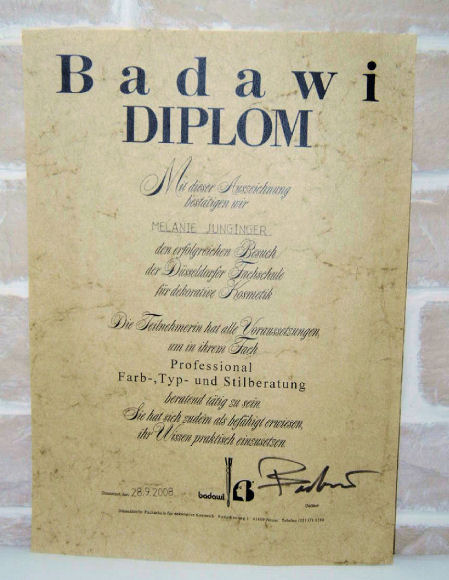 Badawi
DIPLOM
Mit dieser Auszeichnung
bestätigen wir
MELANIE JUNGINGER
den erfolgreichen Besuch
der Düsseldorfer Fachschule
für dekorative Kosmetik
Die Teilnehmerin hat alle Voraussetzungen,
um in ihrem Fach
Professional
Farb-,Typ- und Stilberatung
beratend tätig zu sein.
Sie hat sich zudem als befähigt erwiesen,
ihr Wissen praktisch einzusetzen.
Düsseldorf, den 28.9.2008
badawi
Düsseldorfer Fachschule für dekorative Kosmetik